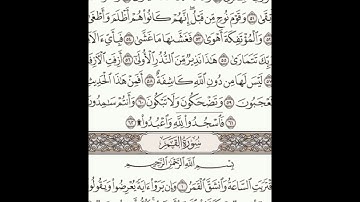 تَبْقَىٰ ٥١ وَقَوْمَ نُوحٍ مِّن قَبْلُ إِنَّهُمْ كَانُوا هُمْ أَظْلَمَ وَأَطْغَىٰ
٥٢ وَالْمُؤْتَفِكَةَ أَهْوَىٰ ٥٣ فَغَشَّىٰهَا مَا غَشَّىٰ ٥٤ فَبِأَيِّ ءَالَآءِ
رَبِّكَ تَتَمَارَىٰ ٥٥ هَٰذَا نَذِيرٌ مِّنَ النُّذُرِ الْأُولَىٰ ٥٦ أَزِفَتِ الْءَازِفَةُ
٥٧ لَيْسَ لَهَا مِن دُونِ اللَّهِ كَاشِفَةٌ ٥٨ أَفَمِنْ هَٰذَا الْحَدِيثِ
تَعْجَبُونَ ٥٩ وَتَضْحَكُونَ وَلَا تَبْكُونَ ٦٠ وَأَنتُمْ سَٰمِدُونَ
٦١ فَاسْجُدُوا لِلَّهِ وَاعْبُدُوا ۩ ٦٢
سُورَةُ الْقَمَرِ
بِسْمِ اللَّهِ الرَّحْمَٰنِ الرَّحِيمِ
اقْتَرَبَتِ السَّاعَةُ وَانشَقَّ الْقَمَرُ ١ وَإِن يَرَوْا ءَايَةً يُعْرِضُوا وَيَقُولُوا